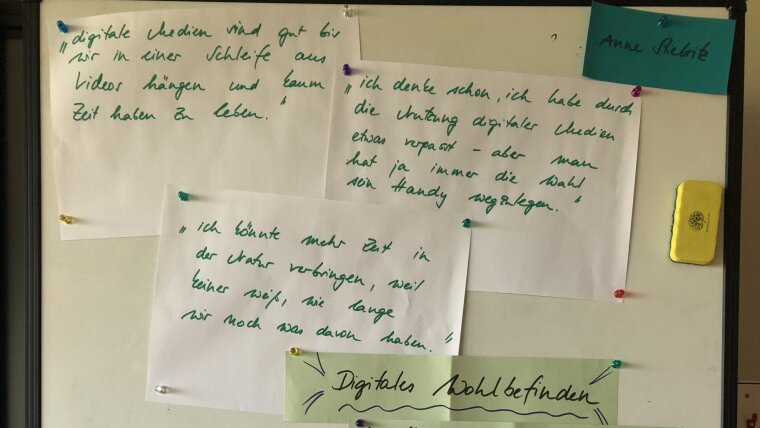 „digitale Medien sind gut bis
wir in einer Schleife aus
Videos hängen und kaum
Zeit haben zu leben."
Anne
„ich denke schon, ich habe durch
die Nutzung digitaler Medien
etwas verpasst – aber man
hat ja immer die Wahl
sein Handy wegzulegen."
„ich könnte mehr Zeit in
der Natur verbringen, weil
keiner weiß, wie lange
wir noch was davon haben."
Digitales Wohlbefinden